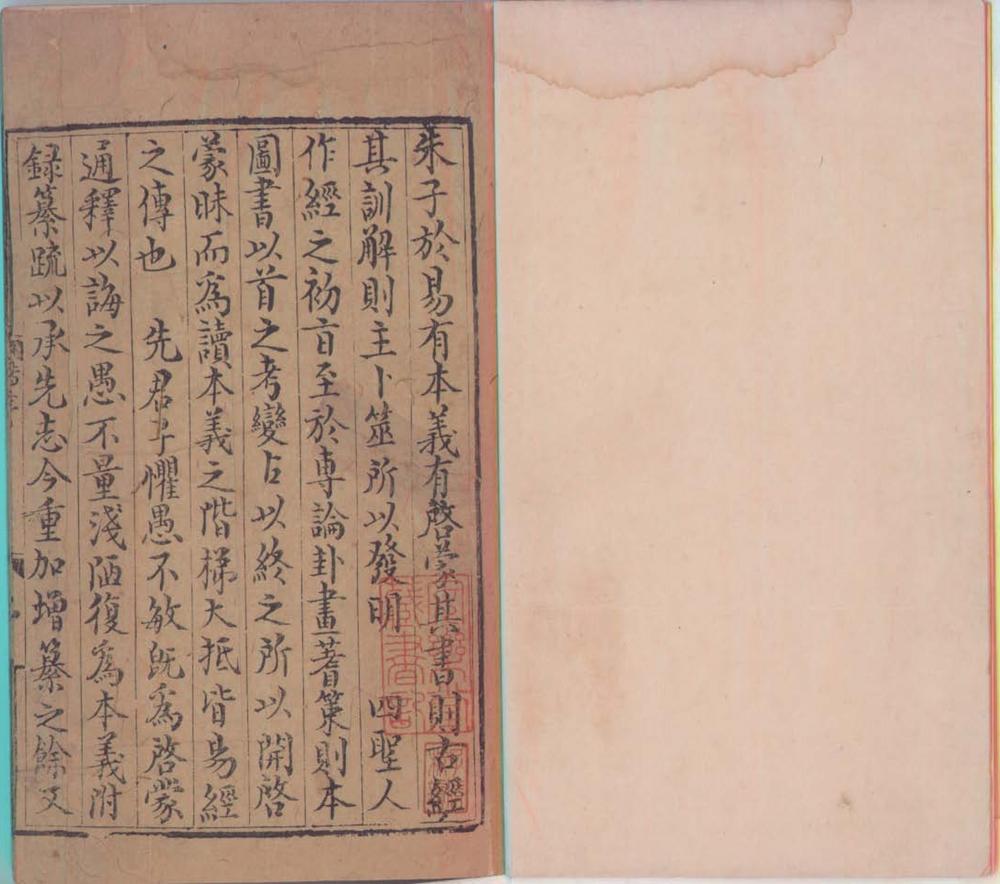 朱子於易有本義有啓蒙其書則古經
其訓解則主卜筮所以發明 四聖人
作經之初旨至於専論卦畫蓍策則本
圖書以首之考變占以終之所以開啓
蒙昧而爲讀本義之階梯大抵皆易經
之傳也 先君子懼愚不敏旣爲啓蒙
通釋以誨之愚不量淺陋復爲本義附
録纂疏以承先志今重加增纂之餘又
藏書